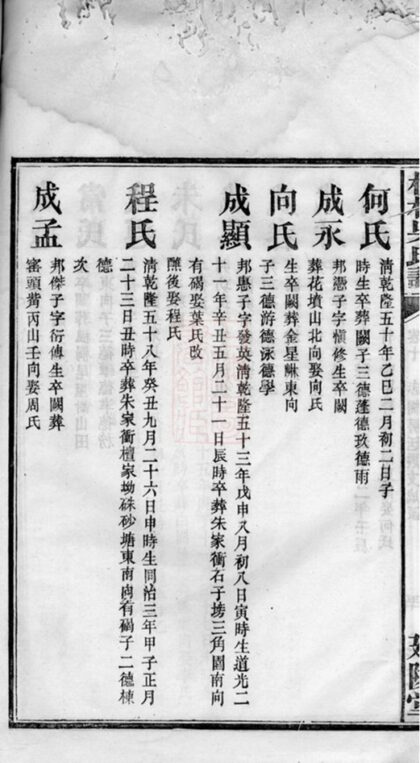 何氏
清乾隆五十年乙巳二月初二日子
時生卒葬闕子三德蓬德玖德雨
成永
邦憑子字愼修生卒闕
葬花墳山北向娶向氏
向氏
生卒闕葬金星𡶶東向
子三德游德泳德學
成顯
邦惠子字發英清乾隆五十三年戊申八月初八日寅時生道光二
十一年辛丑五月三十一日辰時卒葬朱家衝石子塝三角園南向
有碣娶葉氏改
醮後娶程氏
程氏
清乾隆五十八年癸丑九月二十六日申時生同治三年甲子正月
二十三日丑時卒葬朱家衝檀家坳硃砂塘東南向有碣子二德棟
德
次
成孟
邦傑子字衍傳生卒闕葬
窰頭嘴丙山壬向娶周氏